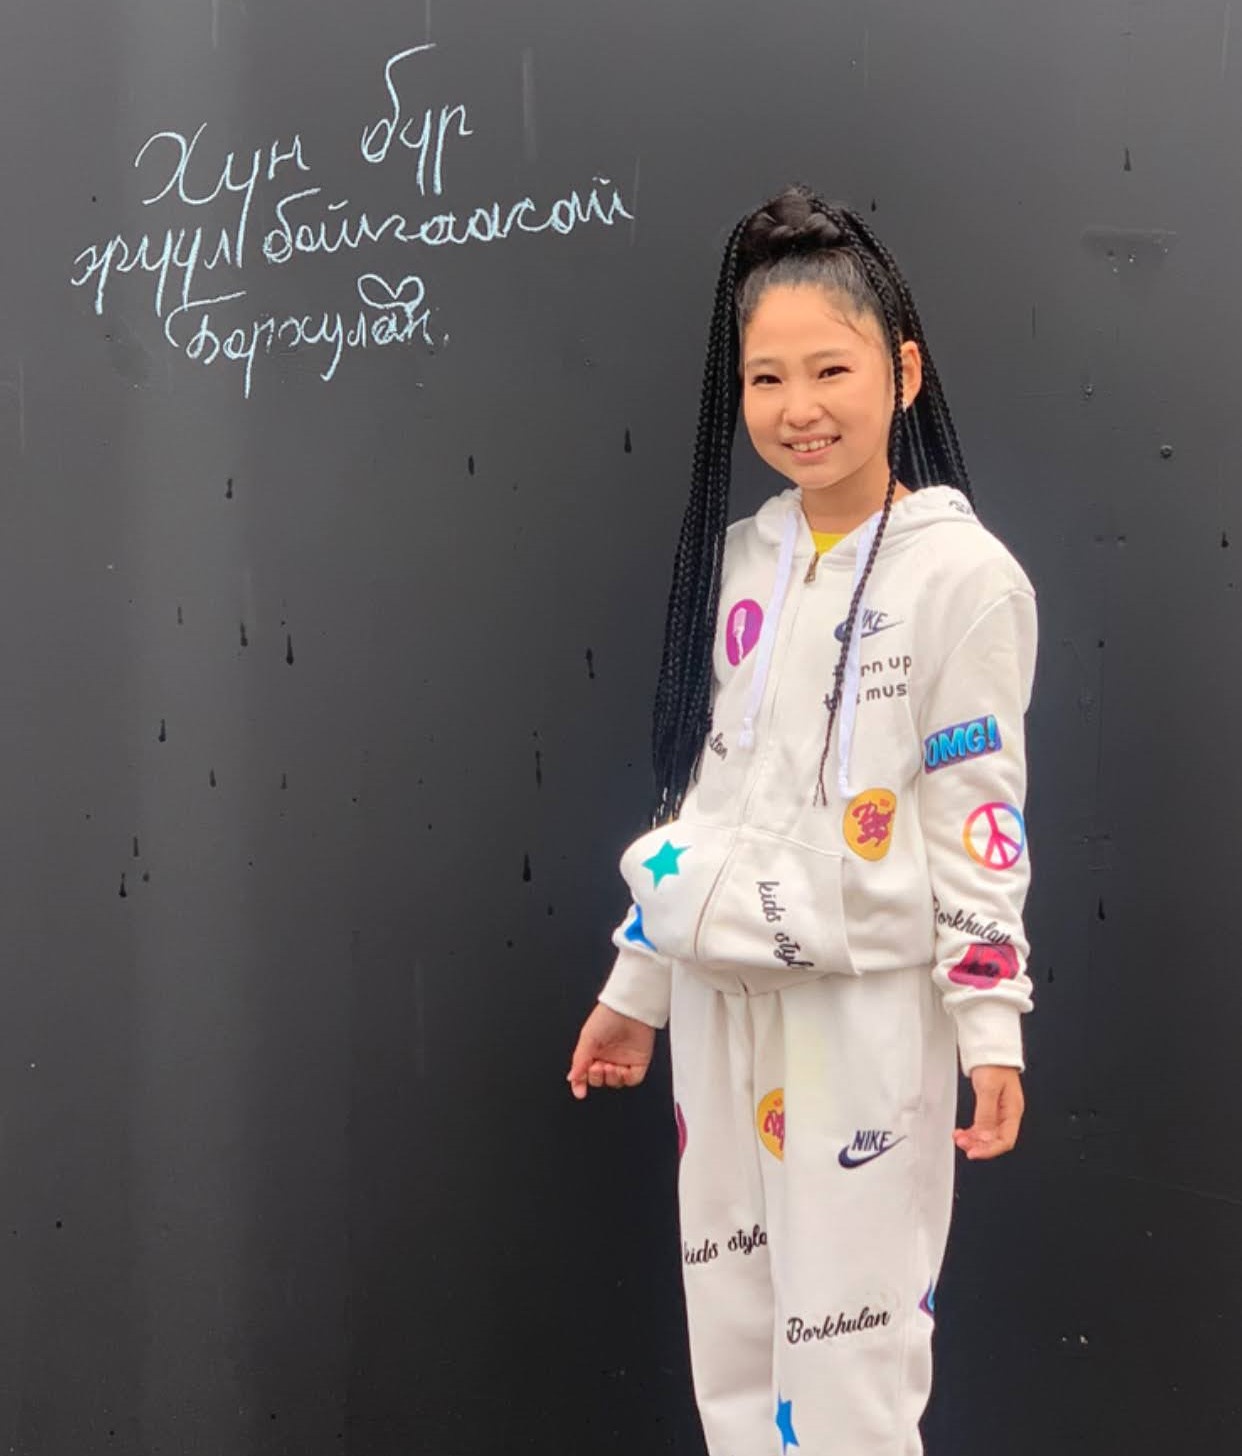 Хүн бүр
эрүүл байгаасай
Борхулан.
NIKE
rn up
mus
OMG!
kids styl
Borkhulan
NIKE
kids style
Borkhulan